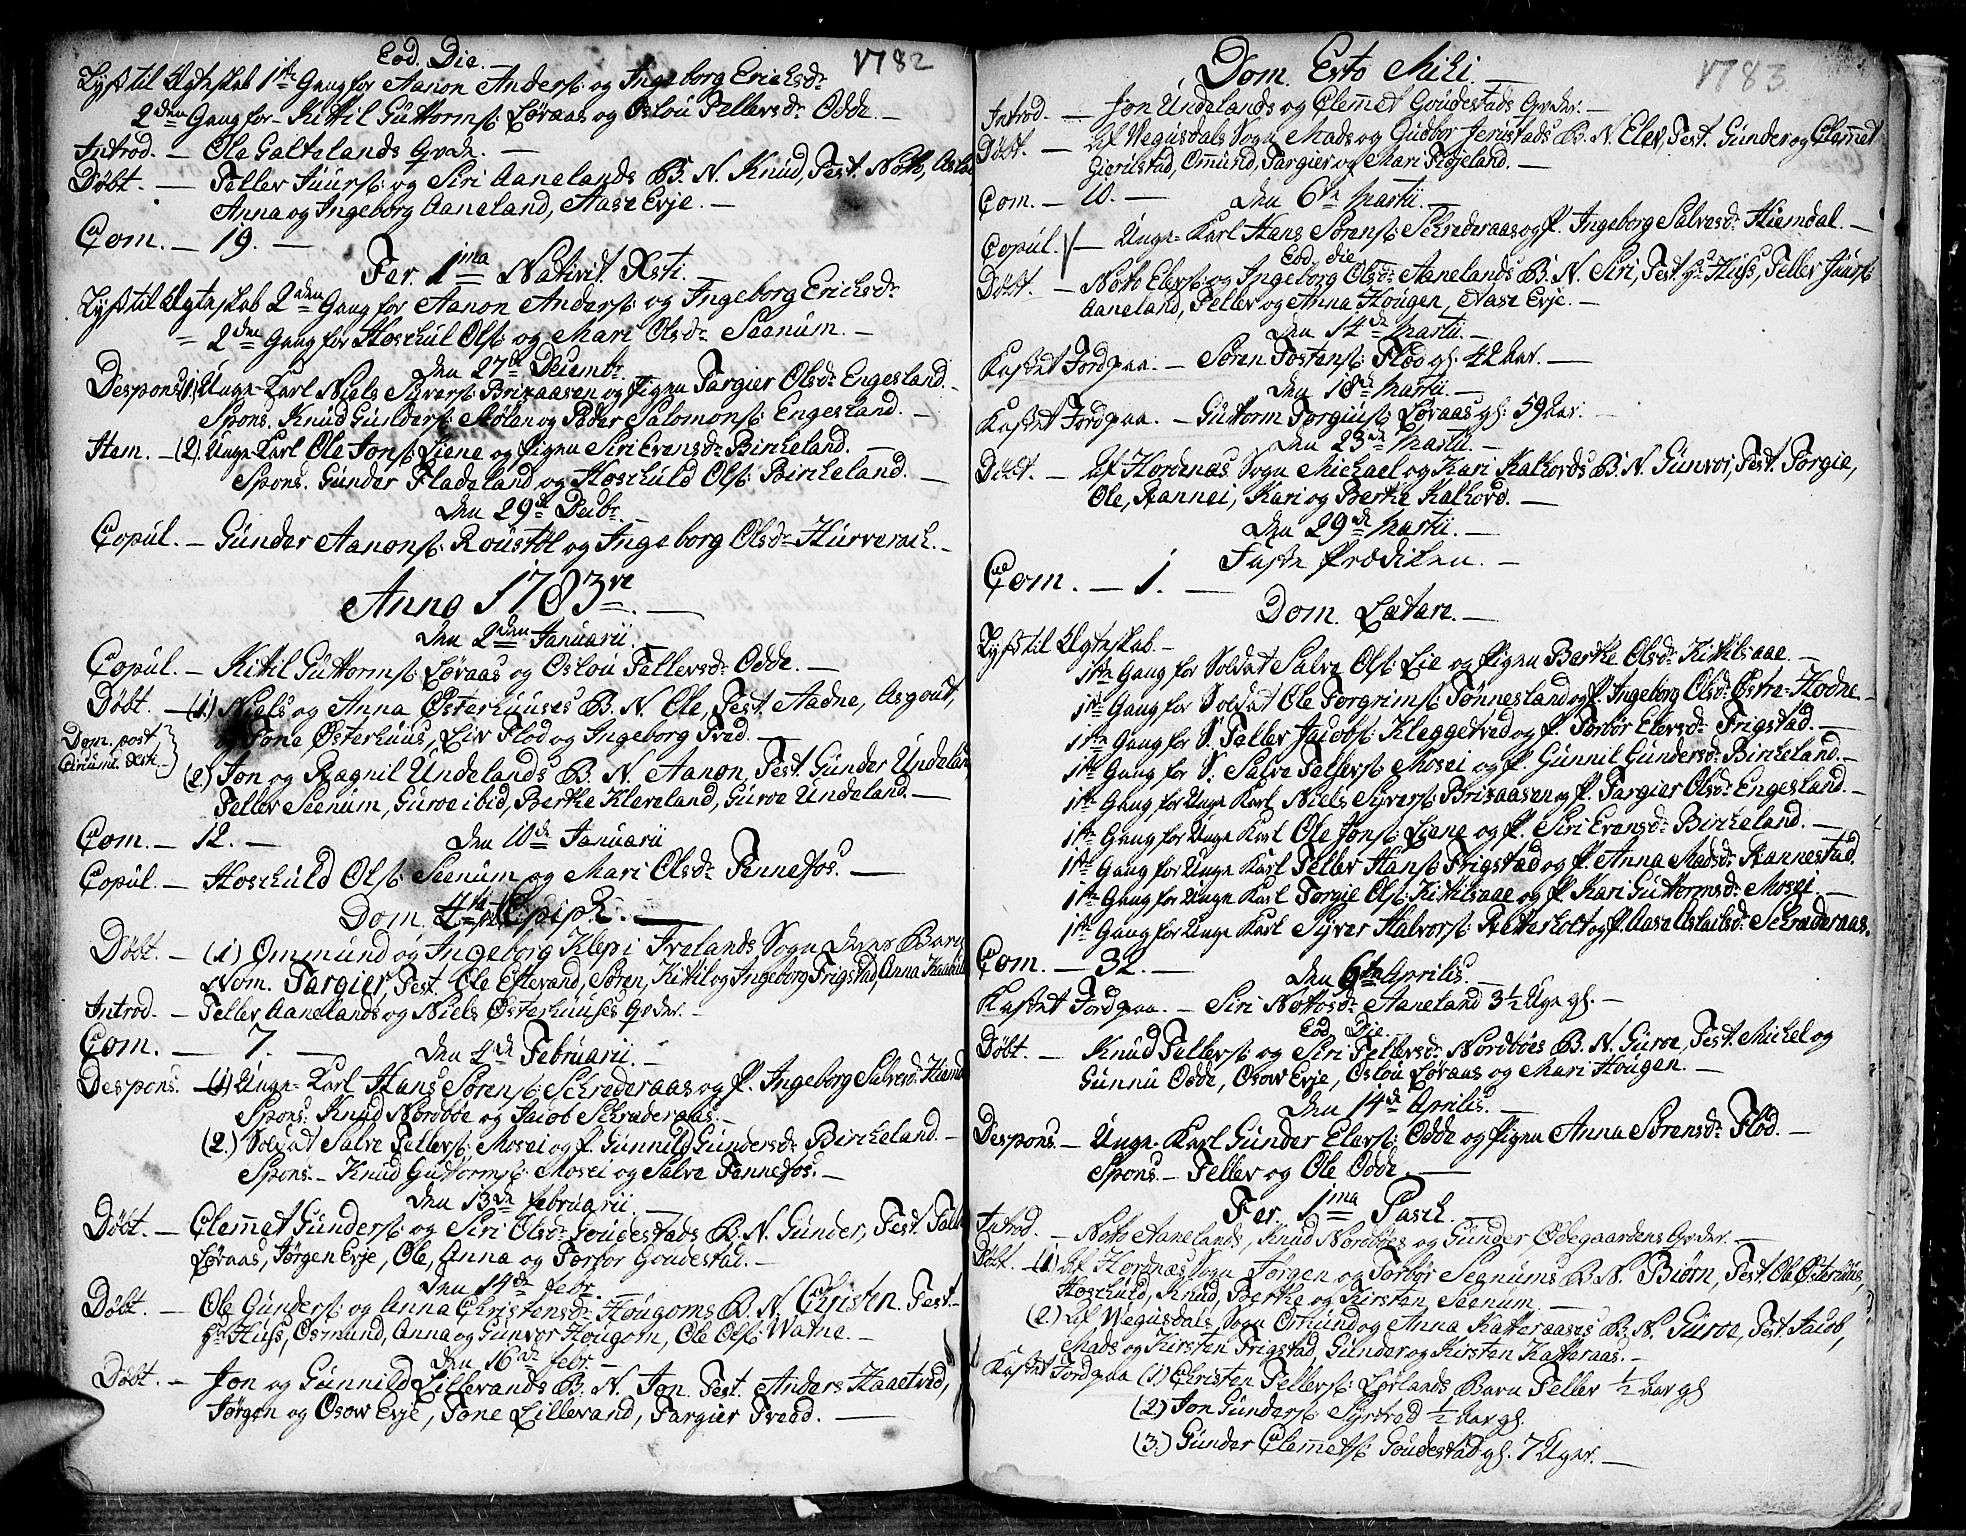 Eod. Die. 1782
Lyst til Ægteskab 1ste Gang for Aanon Anders: og Ingeborg Erichsdr
2den Gang for Kittil Guttorms: Løraas og Oslou Tellevsdr Odde. —
Introd. — Ole Galtelands Qvde. —
Døbt. — Tellev Juurs: og Siri Aanelands B. N. Knud, Test. Noto,
Anna og Ingeborg Aaneland, Aase Evje. —
Com. — 19. —
Fer. 1ma Nativit. Xsti. —
Lyst til Ægteskab 2den Gang for Aanon Anders: og Ingeborg Erichsdr
— 2den Gang for Hoschul Ols: og Mari Olsdr Seenum. —
Den 27de Decembr.
Despons. (1.) Unge-Karl Niels Syvers: Brixaasen og Pigen Targier Olsdr Engesland. —
Spons. Knud Gunders: Stølan og Peder Salomons: Engesland. —
Hem. — (2.) Unge Karl Ole Jons: Liene og Pigen Siri Evensdr Bircheland. —
Spons. Gunder Fladeland og Hoschuld Ols: Bircheland. —
Den 29de Decbr. —
Copul. — Gunder Aanons: Roustøl og Ingeborg Olsdr Hurverach. —
Anno 1783re. —
Den 2den Januarii
Copul. — Kittil Guttorms: Løraas og Oslou Tellevsdr Odde. —
Døbt. — (1.) Niels og Anna Østerhuuses B. N. Ole, Test. Aadne, Asgout,
og Tone Østerhuus, Liv Flod og Ingeborg Tved. —
Dom. post
Circumc. Xsti. —
(2.) Jon og Ragnil Undelands B. N. Aanon, Test. Gunder Undeland,
Tellev Seenum, Guroe ibid, Berthe Kleveland, Guroe Undeland. —
Com. — 12. — Den 10de Januarii
Copul. — Hoschuld Ols: Seenum og Mari Olsdr Fennefos. —
Dom. 4ta p. Epiph. —
Døbt. — (1) Ommund og Ingeborg Klep i Ivelands Sogn deres Barn
Nom. Targier, Test. Ole Eftevand, Søren, Kittil og Ingeborg Frigstad, Anna
Introd. — Tellev Aanelands og Niels Østerhuuses Qvder. —
Com. — 7. — Den 4de Februarii. —
Despons. — (1) Unge-Karl Hans Sørens: Schrederaas og P. Ingeborg Salvesd:
Spons. Knud Nordbøe og Jacob Schraderaas. —
(2.) Soldat Salve Tellevs: Mosei og P. Gunnild Gundersdr Bircheland. —
Spons. — Knud Guttorms: Mosei og Salve Fennefos. —
Den 13de Februarii. —
Døbt. — Clemmet Gunders: og Siri Olsdr Goudestads B. N. Gunder, Test.
Løraas, Jørgen Evje, Ole, Anna og Torbor Goudestad. —
Den 14de febr. —
Døbt. — Ole Gunders: og Anna Christensdr Hougoms B. N. Christen. Test. —
Hr. Huss, Osmund, Anna og Gunvor Hougom, Ole Ols: Watne. —
Den 16de febr. —
Døbt. — Jon og Gunnild Lillevands B. N. Jon. Test. Anders Haaetved,
Jørgen og Osow Evje, Tone Lillevand, Targier Tvead. —
Dom. Esto Mihi. — 1783
Introd. — Jon Undelands og Clemmet Goudestads Qvder. —
Døbt. — Af Wegusdals Sogn Mads og Gudbor Jerustads B. N. Elev, Test. Gunder og Clemmet
Gierilstad, Ommund, Targier og Mari Fløjeland. —
Com. — 10. — Den 6te Martii. —
Copul. — Unge-Karl Hans Sørens: Schrederaas og P. Ingeborg Salvesdr Hiemdal. —
Eod. die
Døbt. — Noto Elevs: og Ingeborg Olsdr Aanelands B. N. Siri, Test. Hr. Huss, Tellev Juurs:
Aaneland, Tellev og Anna Hougen, Aase Evje. —
Den 14de Martii. —
Kastet Jord paa. — Søren Tostens: Floo gl. 42 Aar. —
Den 18de Martii. —
Kastet Jord paa. — Guttorm Torgius: Løraas gl. 59 Aar. —
Den 23de Martii. —
Døbt. — Af Hordenæs Sogn Michael og Kari Kalhovds B. N. Gunvor, Test. Torgie,
Ole, Rannei, Kari og Berthe Kalhovd. —
Den 29de Martii. —
Faste Prædiken. —
Com. — 1. —
Dom. Lætare. —
Lyst til Ægteskab. —
1ste Gang for Soldat Salve Ols: Lie og Pigen Berthe Olsdr Kittilsaae. —
1ste Gang for Soldat Ole Torgrims: Tønnesland og P. Ingeborg Olsdr Østre-Hodne. —
1ste Gang for S. Tellev Jacobs: Kleggetved og P. Torbør Elevsdr Frigstad. —
1ste Gang for S. Salve Tellevs: Mosei og P. Gunnil Gundersdr Bircheland. —
1ste Gang for Unge Karl Niels Syvers: Brixaasen og P. Targier Olsdr Engesland. —
1ste Gang for Unge Karl Ole Jons: Liene og P. Siri Evensdr Bircheland. —
1ste Gang for Unge Karl Tellev Hans: Frigstad og P. Anna Madsdr Rannestad.
1ste Gang for Unge Karl Torgie Ols: Kittilsaae og P. Kari Guttormsdr Mosei. —
1ste Gang for Unge Karl Syver Halvors: Retterholt og P. Aase Aslachsdr Schraderaas.
Com. — 32. —
Den 6te Aprilis. —
Kastet Jord paa. — Siri Notosdr Aaneland 3½ Uge gl. —
Eod. Die.
Døbt. — Knud Tellevs: og Siri Tellevsdr Nordbøes B. N. Guroe, Test. Michel og
Gunnu Odde, Osow Evje, Oslou Løraas og Mari Hougen. —
Den 14de Aprilis. —
Despons. — Unge-Karl Gunder Elevs: Odde og Pigen Anna Sørensdr Flod. —
Spons. — Tellev og Ole Odde. —
Fer. 1ma Pasch. —
Introd. — Noto Aanelands, Knud Nordbøes og Gunder Ødegaardens Qvder. —
Døbt. — (1.) Af Hordnæs Sogn Jørgen og Torbør Segnums B. N. Biørn, Test. Ole Østerhuus,
Hoschuld, Knud, Berthe og Kirsten Seenum. —
(2.) Af Wegusdals Sogn Osmund og Anna Katteraases B. N. Guroe, Test. Jacob,
Mads og Kirsten Frigstad, Gunder og Kirsten Katteraas. —
Kastet Jord paa (1) Christen Tellevs: Lørlands Barn Tellev ½ Aar gl
(2) Jon Gunders: Syrtved ½ Aar gl.
(3.) Gunder Clemmets: Goudestad gl. 7 Uger. —